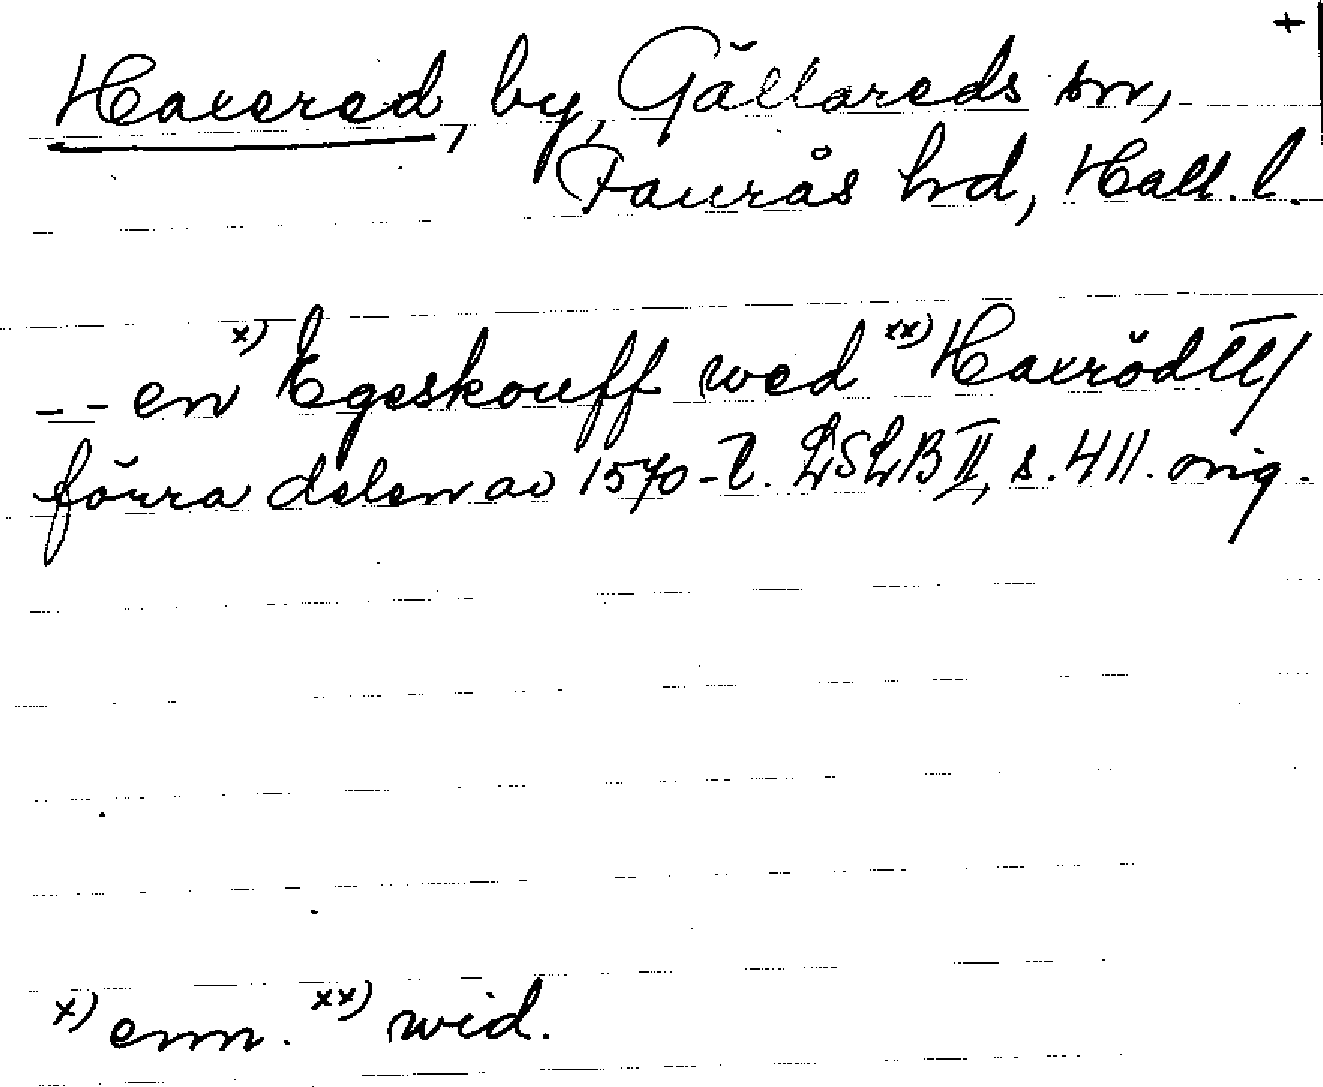 +
Haxered, by, Gällareds sn,
Faurås hd, Hall. l.
-- en x) Egeskouff wed xx) Haxrödtt/
förra delen av 1570-t. LSLB II, s. 411. orig.
x) enn. xx) wid.